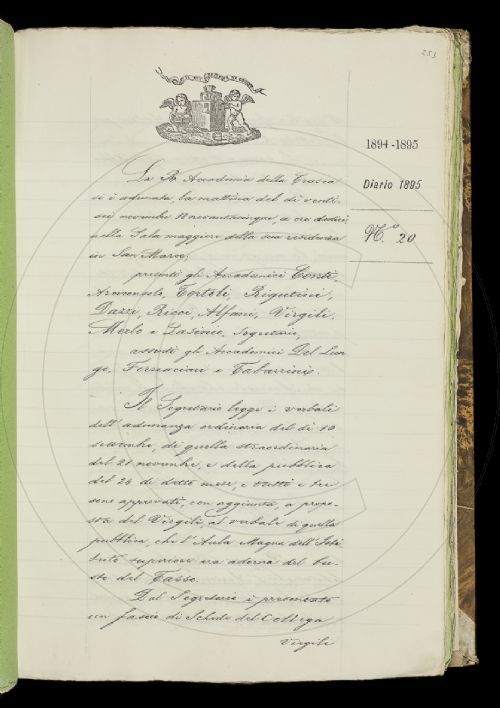 253
1894-1895
Diario 1895
N.° 20
La R. Accademia della Crusca
si è adunata la mattina del dì venti-
sei novembre 18novantacinque, a ore dodici
nella Sala maggiore della sua residenza
in San Marco,
presenti gli Accademici Conti,
Tortoli, Rigutini,
Dazzi, Ricci, Alfani, Virgili,
Merlo e Casini, Segretario,
assenti gli Accademici Del Lun-
go, Fornaciari e Tabarrini.
Il Segretario legge i verbali
dell'adunanza ordinaria del dì 10
settembre, di quella straordinaria
del 21 novembre, e della pubblica
del 24 di detto mese, e tutti e tre
sono approvati, con aggiunta, a propo-
sta del Virgili, al verbale di quella
pubblica, che l'Aula Magna dell'Isti-
tuto superiore era adorna del bu-
sto del Tasso.
Dal Segretario è presentato
un fascio di Schede del Collega
Virgili